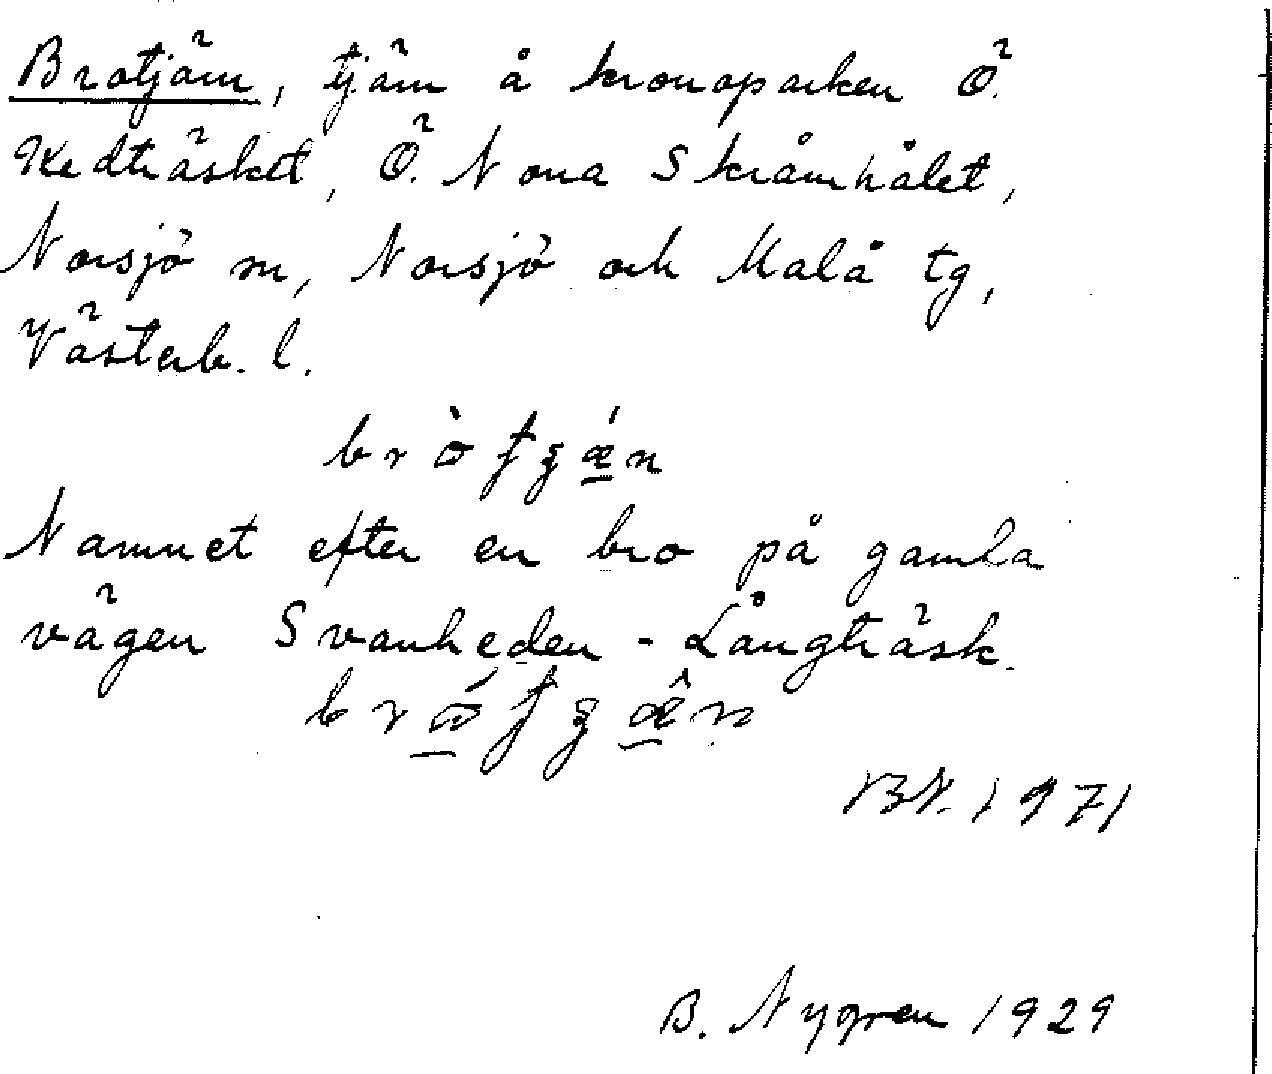 Brotjärn, tjärn å kronoparken Ö.
Kedträsket, Ö. Norra Skråmhålet,
Norsjö sn, Norsjö och Malå tg,
Västerb. l.
Namnet efter en bro på gamla
vägen Svanheden - Långträsk.
BN. 1971
B. Nygren 1929